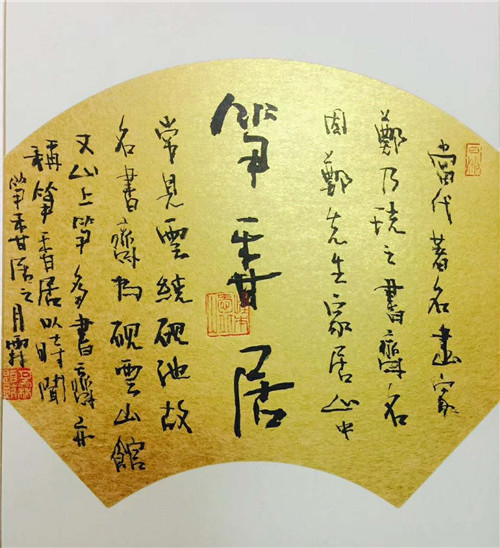 當代著名畫家
鄭乃珖之書齋名
因鄭先生家居山中
笋香居
常見雲繞硯池故
名書齋為硯雲山館
又山上笋多書齋亦
稱笋香居以時聞
笋香居之月霖